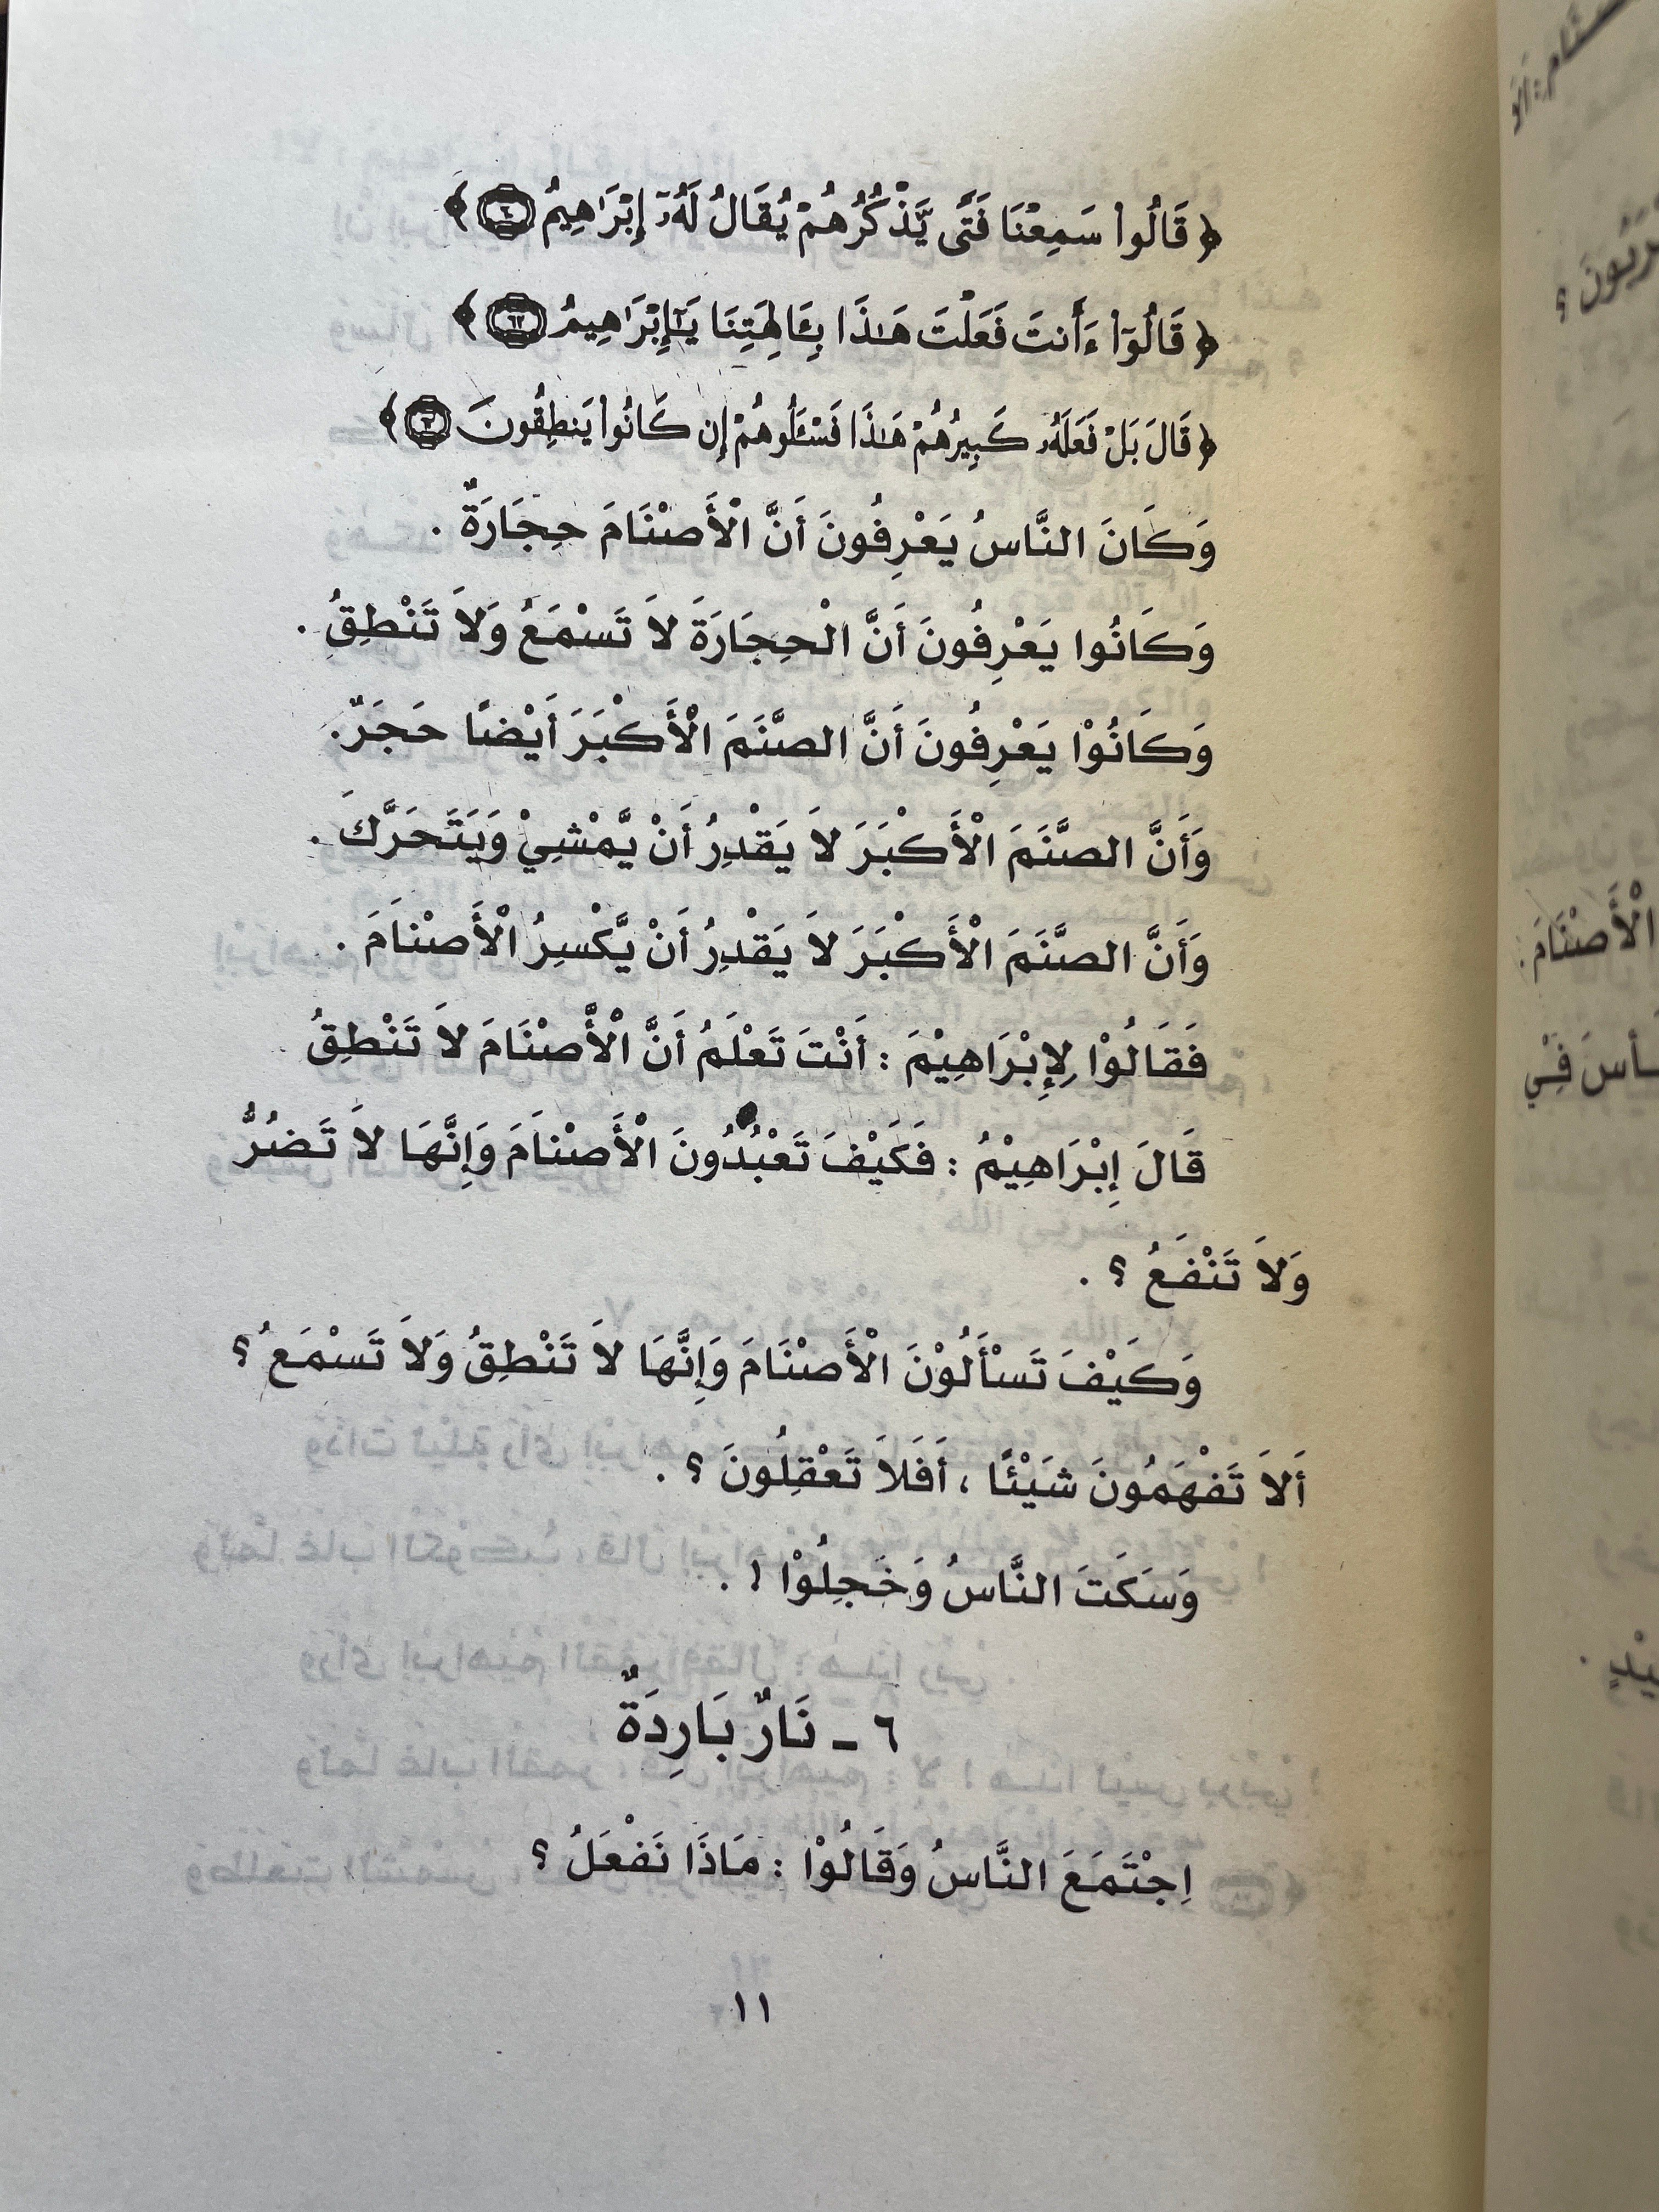 ﴿ قَالُواْ سَمِعْنَا فَتًى يَّذْكُرُهُمْ يُقَالُ لَهُۥٓ إِبْرَٰهِيمُ ﴾
﴿ قَالُوٓاْ ءَأَنتَ فَعَلْتَ هَـٰذَا بِـَٔالِهَتِنَا يَـٰٓإِبْرَٰهِيمُ ٦٢ ﴾
﴿ قَالَ بَلْ فَعَلَهُۥ كَبِيرُهُمْ هَـٰذَا فَسْـَٔلُوهُمْ إِن كَانُواْ يَنطِقُونَ ﴾
وَكَانَ النَّاسُ يَعْرِفُونَ أَنَّ الْأَصْنَامَ حِجَارَةٌ .
وَكَانُوا يَعْرِفُونَ أَنَّ الْحِجَارَةَ لاَ تَسْمَعُ وَلاَ تَنْطِقُ .
وَكَانُوْا يَعْرِفُونَ أَنَّ الصَّنَمَ الْأَكْبَرَ أَيْضًا حَجَرٌ.
وَأَنَّ الصَّنَمَ الْأَكْبَرَ لاَ يَقْدِرُ أَنْ يَّمْشِيْ وَيَتَحَرَّكَ .
وَأَنَّ الصَّنَمَ الْأَكْبَرَ لاَ يَقْدِرُ أَنْ يَّكْسِرُ الْأَصْنَامَ .
فَقَالُوْا لِإِبْرَاهِيْمَ : أَنْتَ تَعْلَمُ أَنَّ الْأَصْنَامَ لاَ تَنْطِقُ
قَالَ إِبْرَاهِيْمُ : فَكَيْفَ تَعْبُدُونَ الْأَصْنَامَ وَإِنَّهَا لاَ تَضُرُّ
وَلاَ تَنْفَعُ ؟ .
وَكَيْفَ تَسْأَلُوْنَ الْأَصْنَامَ وَإِنَّهَا لاَ تَنْطِقُ وَلاَ تَسْمَعُ ؟
أَلاَ تَفْهَمُونَ شَيْئًا ، أَفَلاَ تَعْقِلُونَ ؟ .
وَسَكَتَ النَّاسُ وَخَجِلُوْا ! .
٦ - نَارٌ بَارِدَةٌ
اِجْتَمَعَ النَّاسُ وَقَالُوْا : مَاذَا نَفْعَلُ ؟
١١
الْأَصْنَامَ.